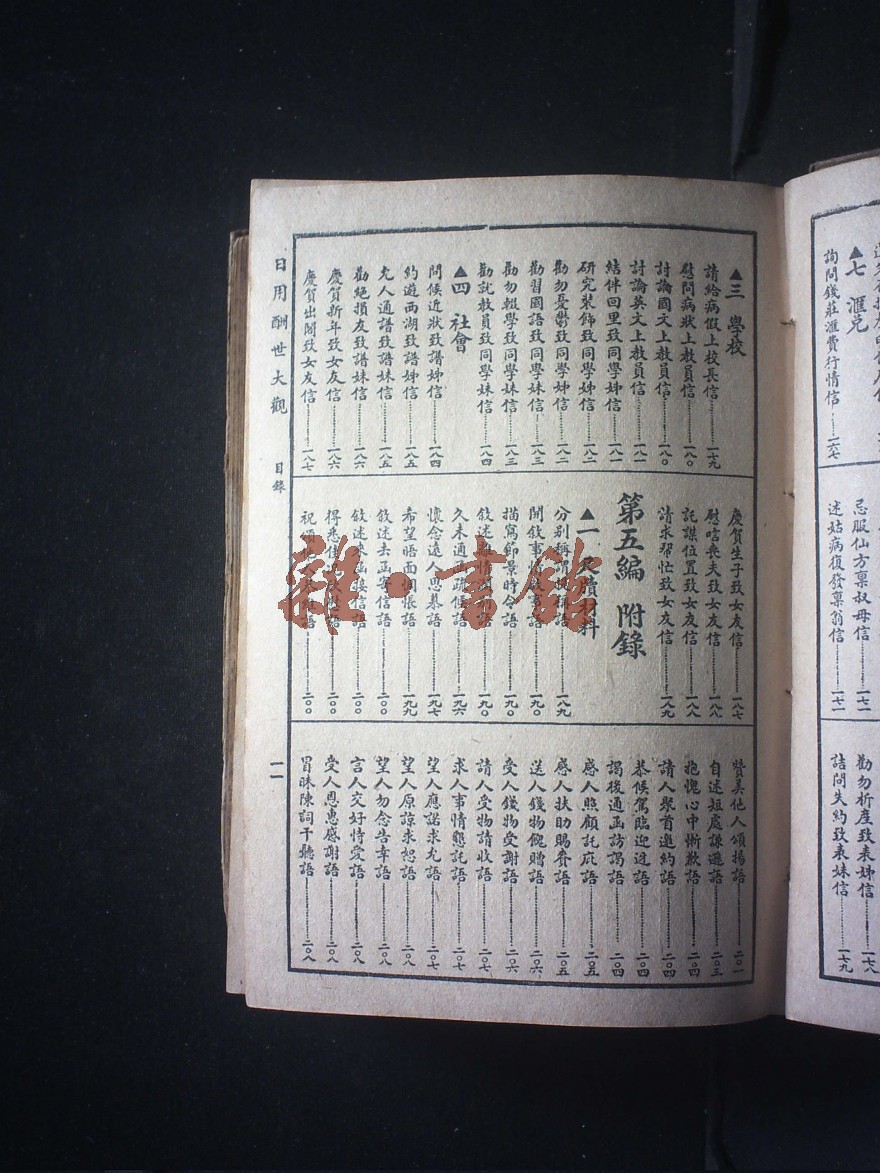 詢問錢莊滙費行情信 一六七
▲七 滙兌
忌服仙方稟叔母信 一七二
述姑病復發稟翁信 一七二
勸勿析產致表姊信 一七八
詰問失約致表妹信 一七九
▲三 學校
請給病假上校長信 一七九
慰問病狀上教員信 一八〇
討論國文上教員信 一八〇
討論英文上教員信 一八一
結伴回里致同學姊信 一八一
研究裝飾致同學姊信 一八二
勸勿憂鬱致同學姊信 一八二
勸習國語致同學妹信 一八三
勸勿輟學致同學妹信 一八三
勸就教員致同學妹信 一八四
▲四 社會
問候近狀致譜姊信 一八四
約遊西湖致譜姊信 一八五
允人通譜致譜妹信 一八五
勸絕損友致譜妹信 一八六
慶賀新年致女友信 一八六
慶賀出閣致女友信 一八七
慶賀生子致女友信 一八七
慰唁喪夫致女友信 一八八
託謀位置致女友信 一八八
請求幫忙致女友信 一八九
第五編 附錄
▲一 材料
分別稱謂語 一八九
開敘事情敘事語 一九〇
描寫節景時令語 一九〇
敘述離情語 一九〇
久未通疏候語 一九六
懷念遠人思慕語 一九七
希望晤面悵語 一九九
敘述去函寄信語 二〇〇
敘述來函接信語 二〇〇
得悉佳語 二〇〇
祝語 二〇〇
贊美他人頌揚語 二〇一
自述短處謙遜語 二〇三
抱愧心中慚歉語 二〇四
請人聚首邀約語 二〇四
恭候駕臨迎迓語 二〇四
謁後通函訪謁語 二〇四
感人照顧託庇語 二〇五
感人扶助賜賚語 二〇五
送人錢物餽贈語 二〇六
受人錢物受謝語 二〇六
請人受物請收語 二〇七
求人事情懇託語 二〇七
望人應諾求允語 二〇七
望人原諒求恕語 二〇八
望人勿念告幸語 二〇八
言人交好恃愛語 二〇八
受人恩惠感謝語 二〇八
冒昧陳詞干聽語 二〇八
日用酬世大觀 目錄 一一
雜·書館